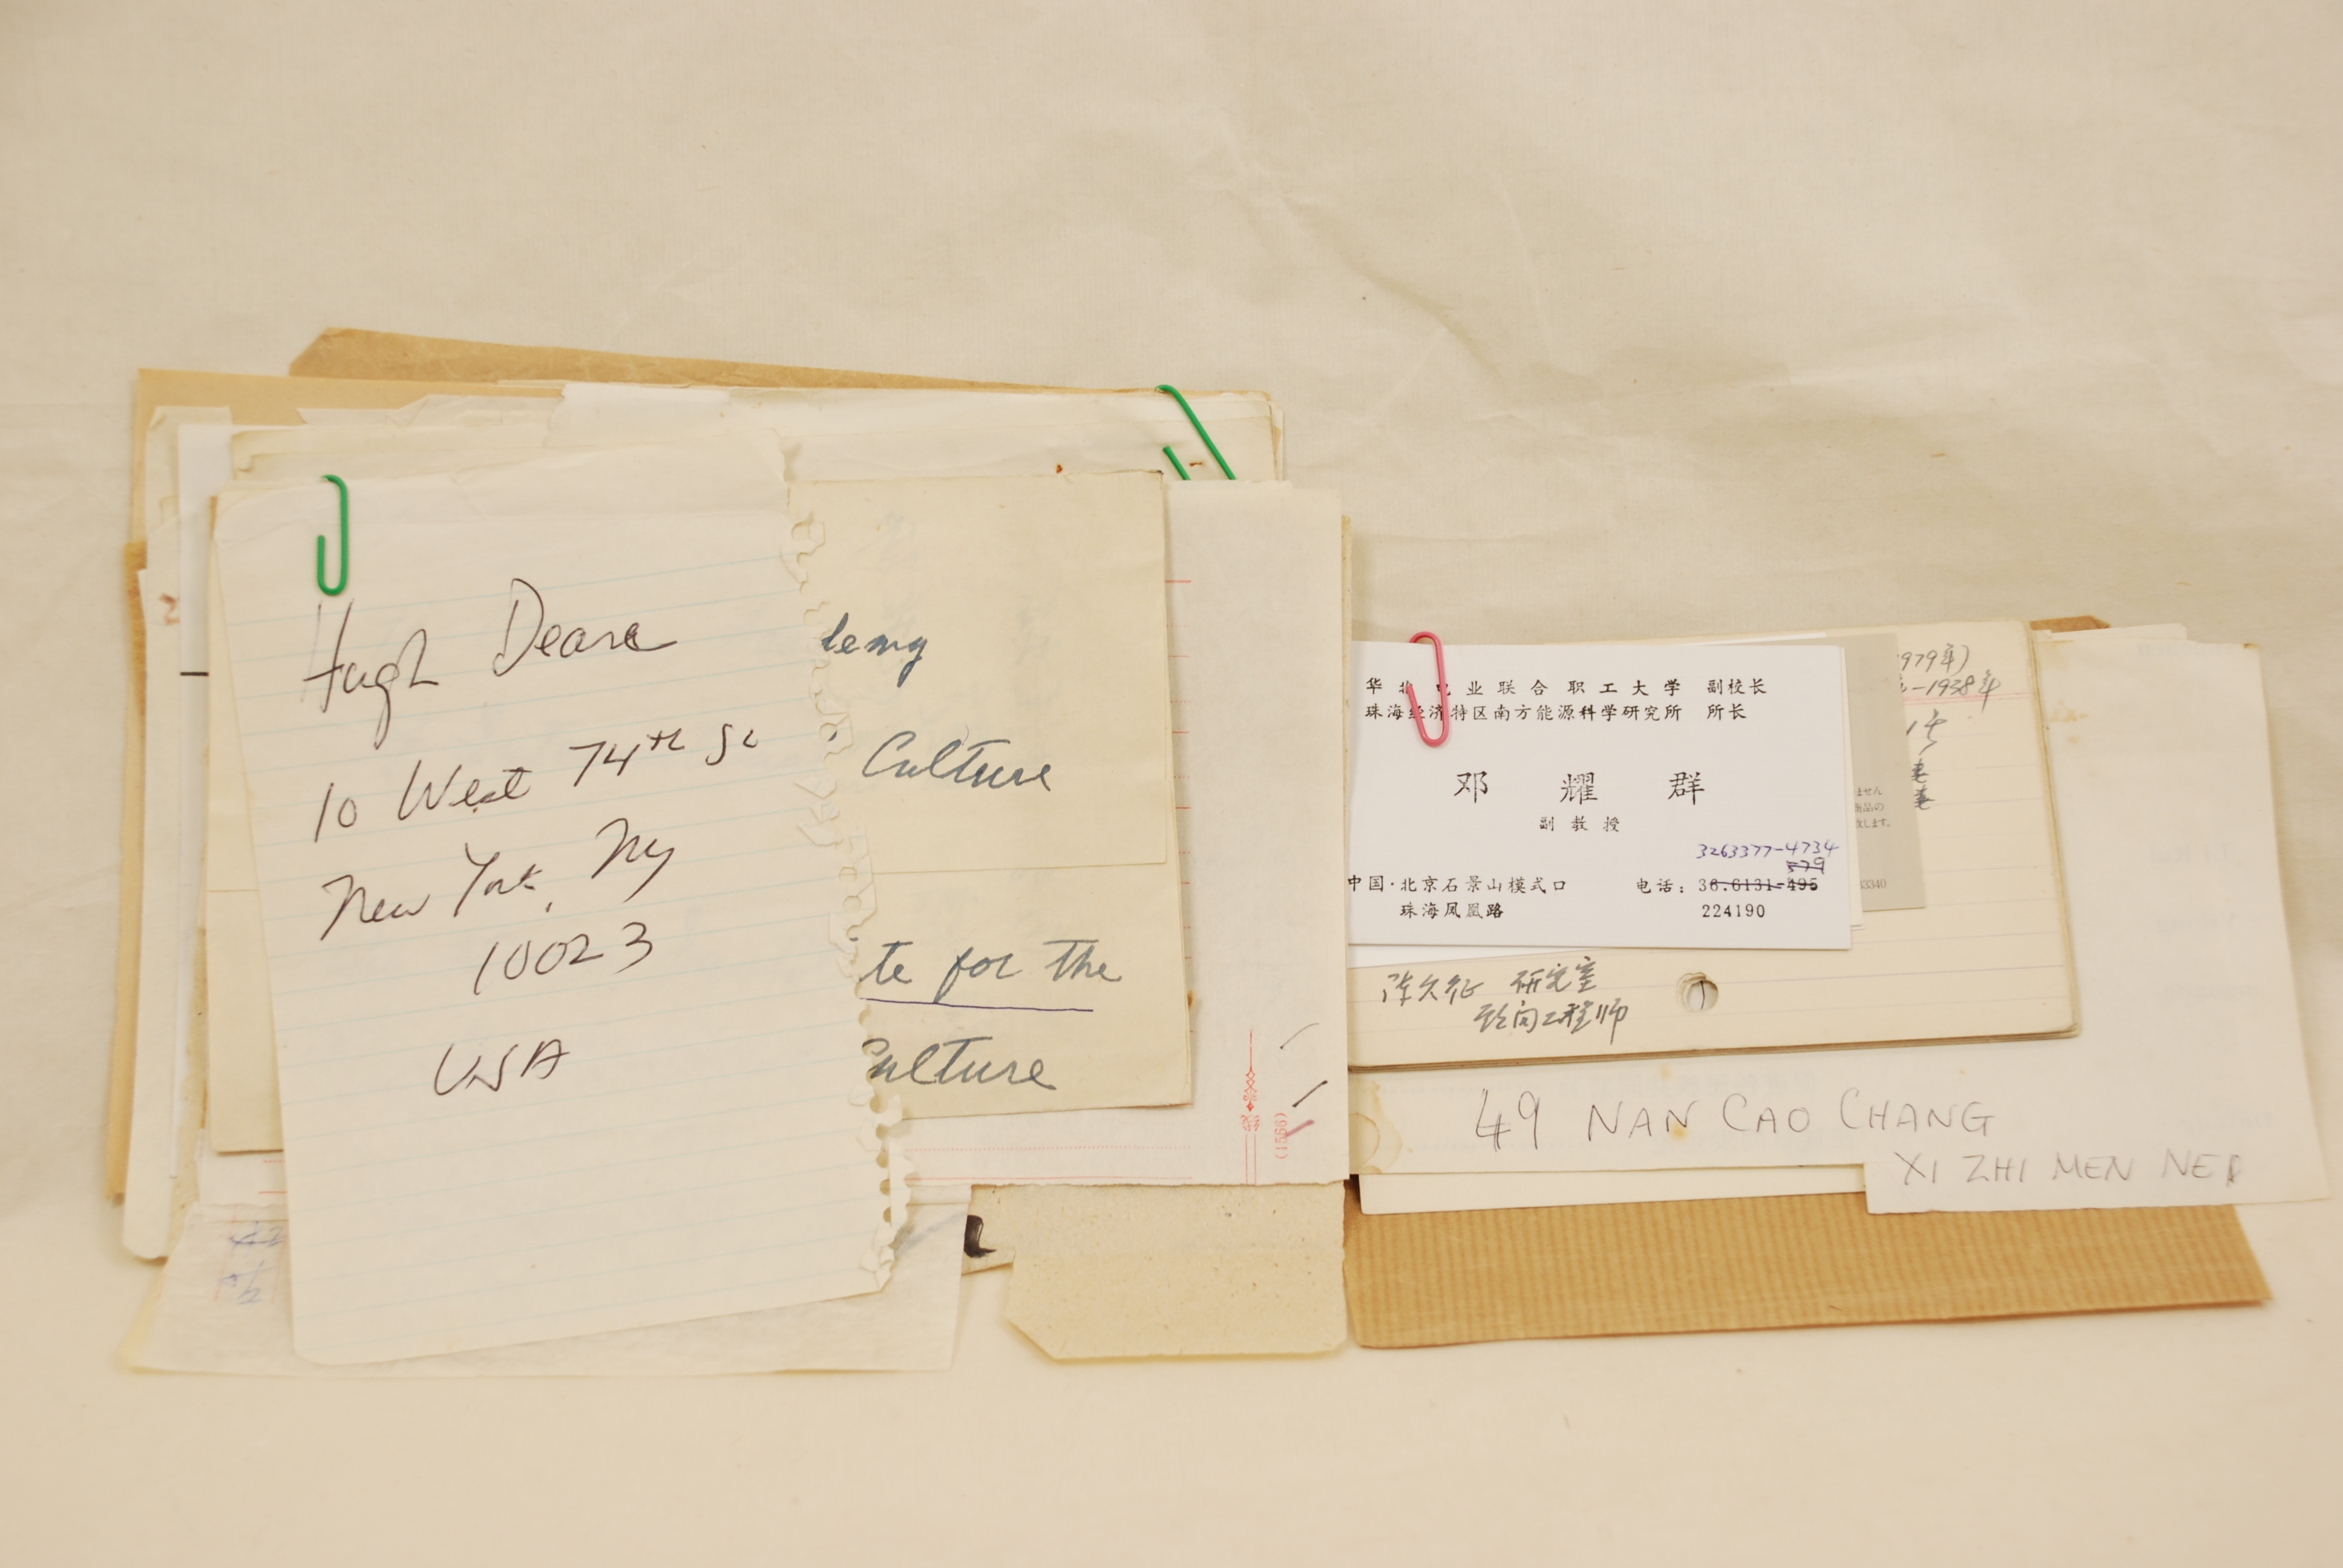 Hugh Deane
10 West 74th St
New York, Ny
10023
USA
demy
Culture
te for the
Culture
(1566)
华北电业联合职工大学 副校长
珠海经济特区南方能源科学研究所 所长
邓 耀 群
副教授
3263377-4734
579
中国·北京石景山模式口 电话：36.6131-495
珠海凤凰路 224190
979年)
-1938年
ません
商品の
致します。
33340
研究室
工程师
49 NAN CAO CHANG
XI ZHI MEN NEI